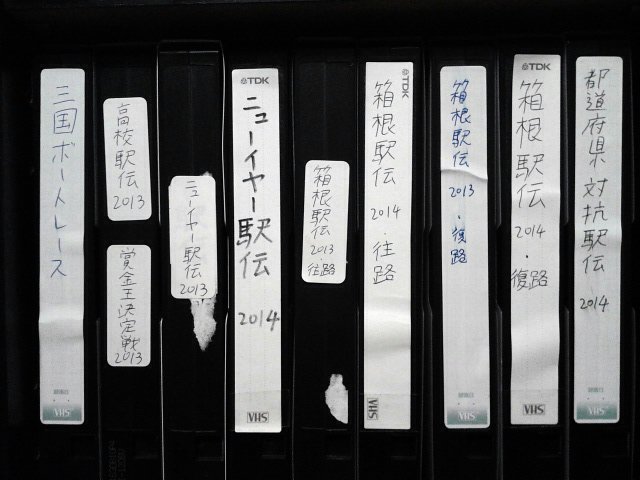 三国ボートレース
高校駅伝 2013
賞金王決定戦 2013
ニューイヤー駅伝 2013
TDK
ニューイヤー駅伝 2014
VHS
箱根駅伝 2013 往路
TDK
箱根駅伝 2014・往路
VHS
箱根駅伝 2013・復路
VHS
TDK
箱根駅伝 2014・復路
VHS
都道府県対抗駅伝・2014
VHS
VHS